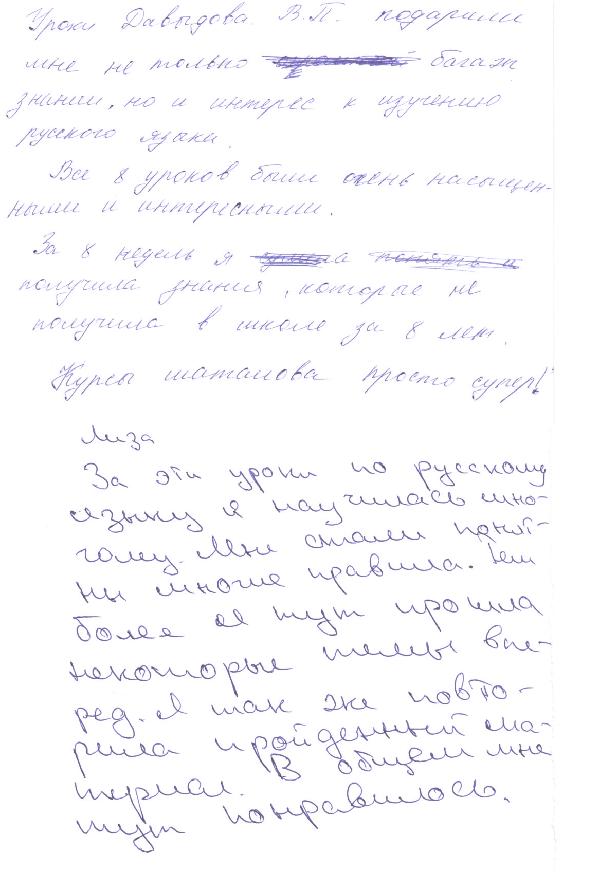 Уроки Давыдова В.П. подарили
мне не только багаж
знании, но и интерес к изучению
русского языка.
Все 8 уроков были очень насыщен-
ными и интересными.
За 8 недель я
получила знания, которые не
получила в школе за 8 лет.
Курсы шаталова просто супер!
Лиза
За эти уроки по русскому
языку я научилась мно-
гому. Мне стали понят-
ны многие правила. Тем
более я тут прошла
некоторые темы впе-
ред. Я так же повто-
рила пройденный ма-
териал. В общем мне
тут понравилось.